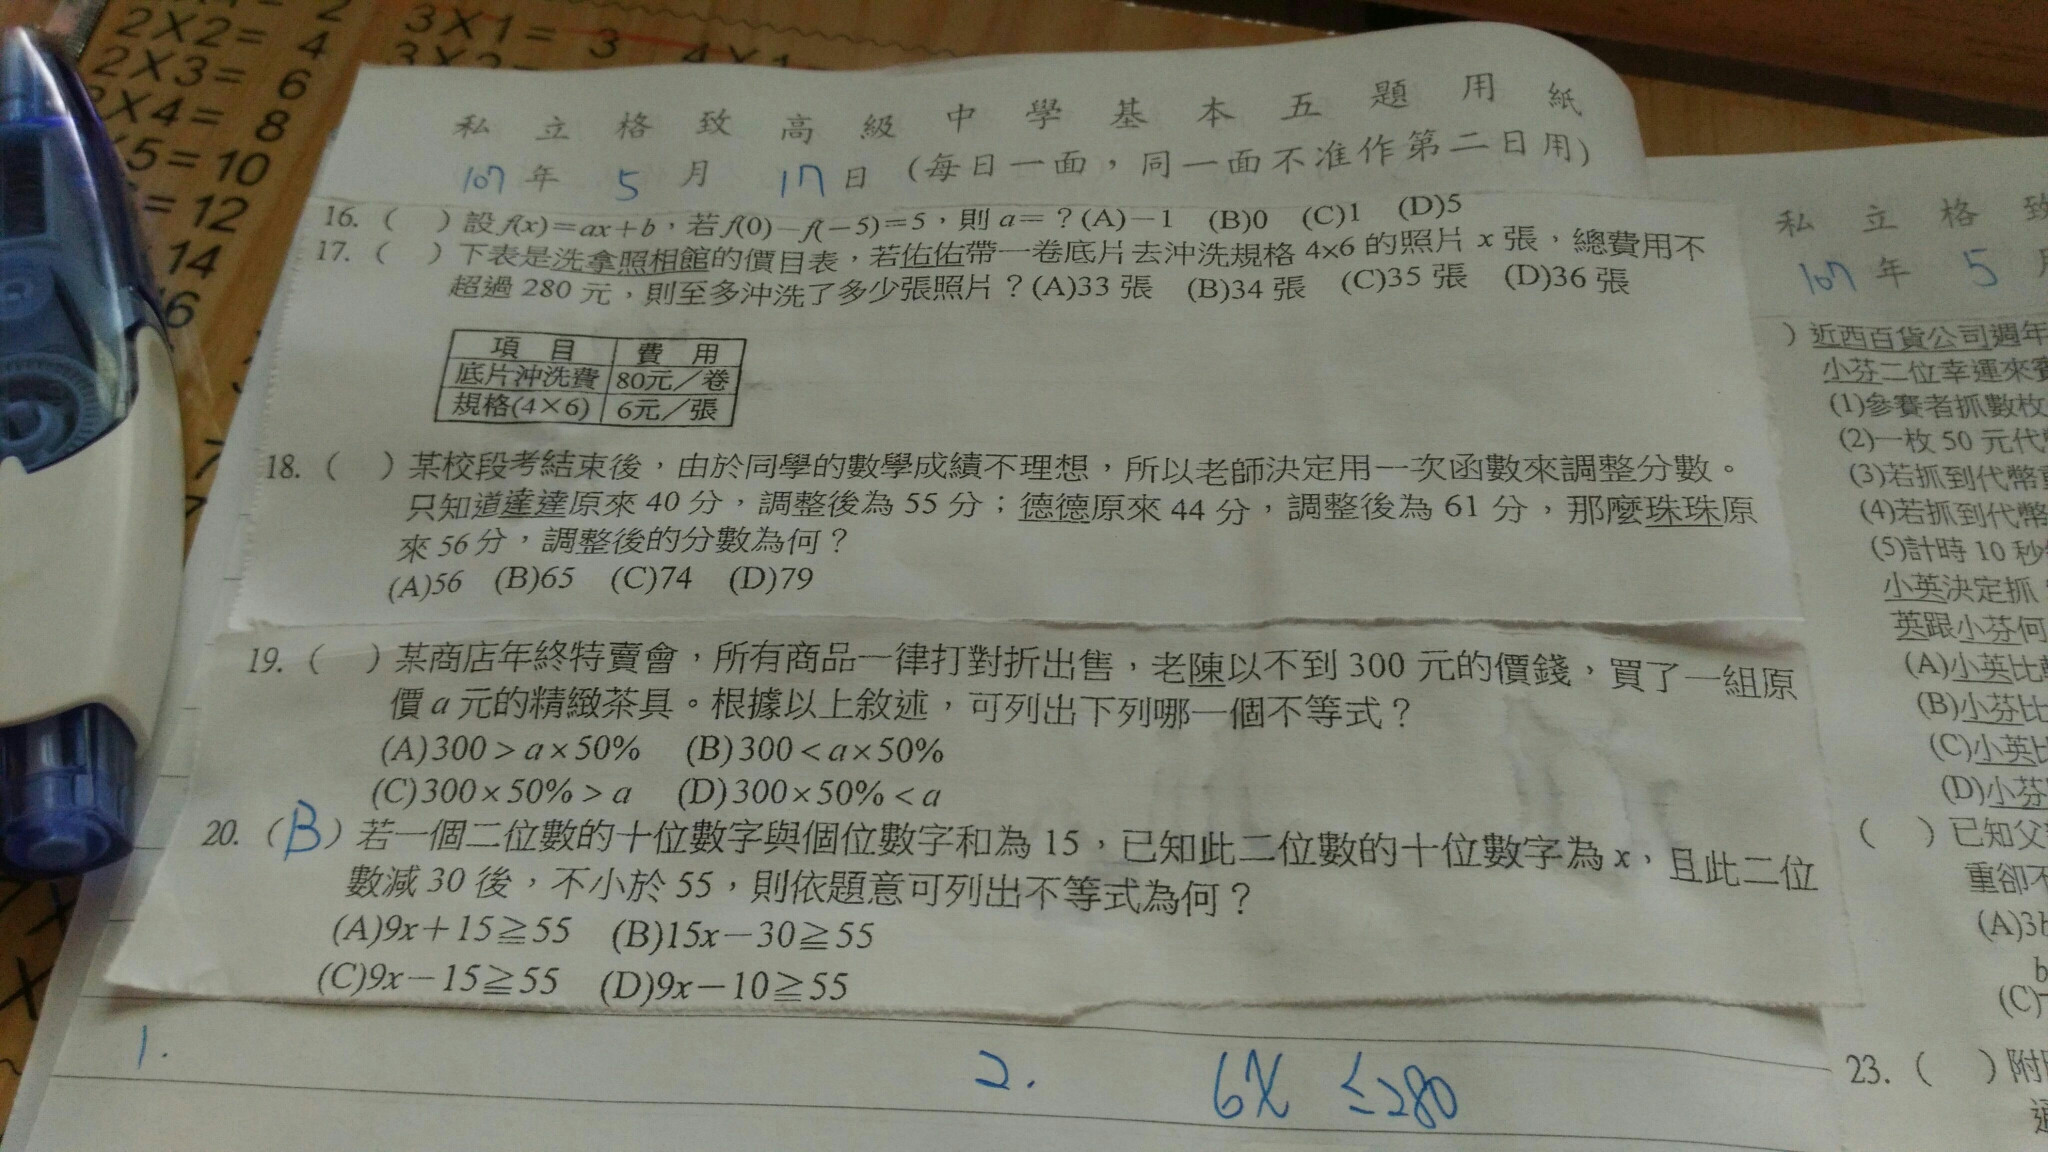 2X2= 4
2X3= 6
X4= 8
5=10
=12
14
3X1= 3
私立格致高級中學基本五題用紙
107年 5月 17日 (每日一面，同一面不准作第二日用)
16. (　) 設 f(x)=ax+b，若 f(0)-f(-5)=5，則 a=？(A)-1 (B)0 (C)1 (D)5
17. (　) 下表是洗拿照相館的價目表，若佑佑帶一卷底片去沖洗規格 4×6 的照片 x 張，總費用不
超過 280 元，則至多沖洗了多少張照片？(A)33 張 (B)34 張 (C)35 張 (D)36 張
項 目 費 用
底片沖洗費 80元／卷
規格(4×6) 6元／張
18. (　) 某校段考結束後，由於同學的數學成績不理想，所以老師決定用一次函數來調整分數。
只知道達達原來 40 分，調整後為 55 分；德德原來 44 分，調整後為 61 分，那麼珠珠原
來 56 分，調整後的分數為何？
(A)56 (B)65 (C)74 (D)79
19. (　) 某商店年終特賣會，所有商品一律打對折出售，老陳以不到 300 元的價錢，買了一組原
價 a 元的精緻茶具。根據以上敘述，可列出下列哪一個不等式？
(A)300＞a×50% (B)300＜a×50%
(C)300×50%＞a (D)300×50%＜a
20. (B) 若一個二位數的十位數字與個位數字和為 15，已知此二位數的十位數字為 x，且此二位
數減 30 後，不小於 55，則依題意可列出不等式為何？
(A)9x＋15≧55 (B)15x－30≧55
(C)9x－15≧55 (D)9x－10≧55
1.
2. 6x ≤280
私立格致
107年 5
) 近西百貨公司週年
小芬二位幸運來賓
(1)參賽者抓數枚
(2)一枚 50 元代幣
(3)若抓到代幣
(4)若抓到代幣
(5)計時 10 秒
小英決定抓
英跟小芬何
(A)小英比
(B)小芬比
(C)小英比
(D)小芬
(　) 已知父
重卻不
(A)3b
b
(C)
23. (　) 附